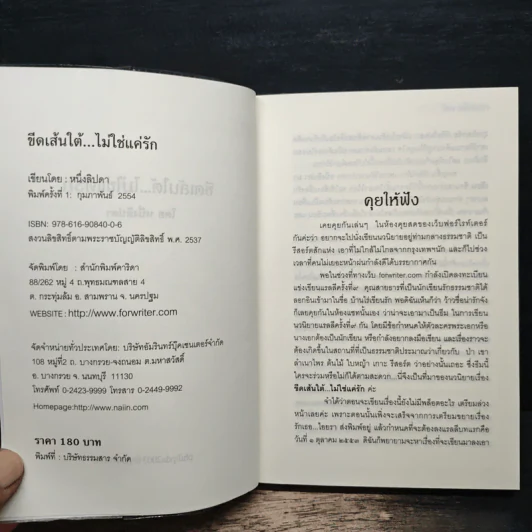 ขีดเส้นใต้...ไม่ใช่แค่รัก
เขียนโดย : หนึ่งลิปดา
พิมพ์ครั้งที่ 1: กุมภาพันธ์ 2554
ISBN: 978-616-90840-0-6
สงวนลิขสิทธิ์ตามพระราชบัญญัติลิขสิทธิ์ พ.ศ. 2537
จัดพิมพ์โดย : สำนักพิมพ์คาริสา
88/262 หมู่ 4 ถ.พุทธมณฑลสาย 4
ต. กระทุ่มล้ม อ. สามพราน จ. นครปฐม
WEBSITE : http://www.forwriter.com
จัดจำหน่ายทั่วประเทศโดย: บริษัทอัมรินทร์บุ๊คเซนเตอร์จำกัด
108 หมู่ที่2 ถ. บางกรวย-จงถนอม ต.มหาสวัสดิ์
อ. บางกรวย จ. นนทบุรี 11130
โทรศัพท์ 0-2423-9999 โทรสาร 0-2449-9992
Homepage:http://www.naiin.com
ราคา 180 บาท
พิมพ์ที่ : บริษัทธรรมสาร จำกัด
คุยให้ฟัง
เคยคุยกันเล่นๆ ในห้องคุยสดของเว็บฟอร์ไรท์เตอร์
กันค่ะว่า อยากจะไปนั่งเขียนนวนิยายอยู่ท่ามกลางธรรมชาติ เป็น
รีสอร์ตสักแห่ง เอาที่ไม่ใกล้ไม่ไกลจากกรุงเทพฯนัก และก็ไปช่วง
เวลาที่คนไม่เยอะหน้าฝนกำลังดีได้บรรยากาศกัน
พอในช่วงที่ทางเว็บ forwriter.com กำลังเปิดลงทะเบียน
แข่งเขียนแรลลี่ครั้งที่๙ คุณสายธารที่เป็นนักเขียนรักธรรมชาติได้
ลอกอินเข้ามาในชื่อ บ้านไร่เขียนรัก พอดิฉันเห็นก็ว่า ว้าวชื่อน่ารักจัง
ก็เลยคุยกันในห้องแชทนั้นเอง ว่าน่าจะเอามาเป็นธีม ในการเขียน
นวนิยายแรลลี่ครั้งที่๙ กัน โดยมีข้อกำหนดให้ตัวละครพระเอกหรือ
นางเอกต้องเป็นนักเขียน หรือกำลังอยากลงมือเขียน และเรื่องราวจะ
ต้องเกิดขึ้นในสถานที่ที่เป็นธรรมชาติประมาณว่าเกี่ยวกับ ป่า เขา
ลำเนาไพร ต้นไม้ ใบหญ้า เกาะ รีสอร์ต ว่าอย่างนั้นเถอะ ซึ่งธีมนี้
ใครจะร่วมหรือไม่ก็ได้ตามสะดวก...นี่จึงเป็นที่มาของนวนิยายเรื่อง
ขีดเส้นใต้...ไม่ใช่แค่รัก ค่ะ
จำได้ว่าตอนจะเขียนเรื่องนี้ยังไม่มีพล็อตอะไร เตรียมล่วง
หน้าเลยค่ะ เพราะตอนนั้นเพิ่งจะเสร็จจากการเตรียมขยายเรื่อง
รักเธอ...ไอยรา ส่งพิมพ์อยู่ แล้วกำหนดที่จะต้องลงแรลลี่บทแรกคือ
วันที่ ๑ ตุลาคม ๒๕๕๓ ดิฉันก็พยายามจะหาเรื่องที่จะเขียนมาลงเอา